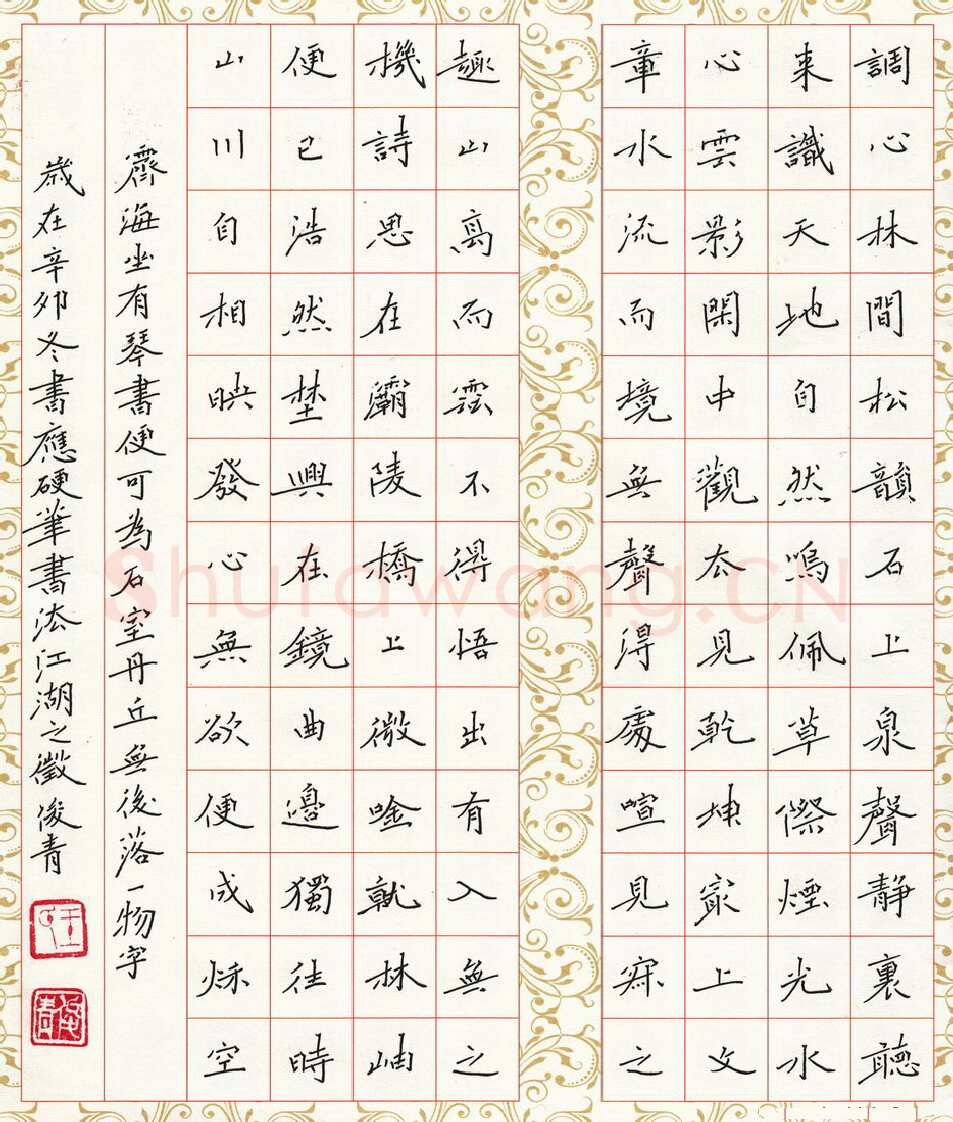 調心林間松韻石上泉聲靜裏聽
來識天地自然鳴佩草際煙光水
心雲影閑中觀去見乾坤㝡上文
章水流而境無聲得處喧見寂之
趣山高而雲不碍悟出有入無之
機詩思在灞陵橋上微吟就林岫
便已浩然埜興在鏡曲邊獨往時
山川自相映發心無欲便成秋空
霽海坐有琴書便可為石室丹丘無後落一物字
歲在辛卯冬書應硬筆書法江湖之徵俊青
Shufawang.CN